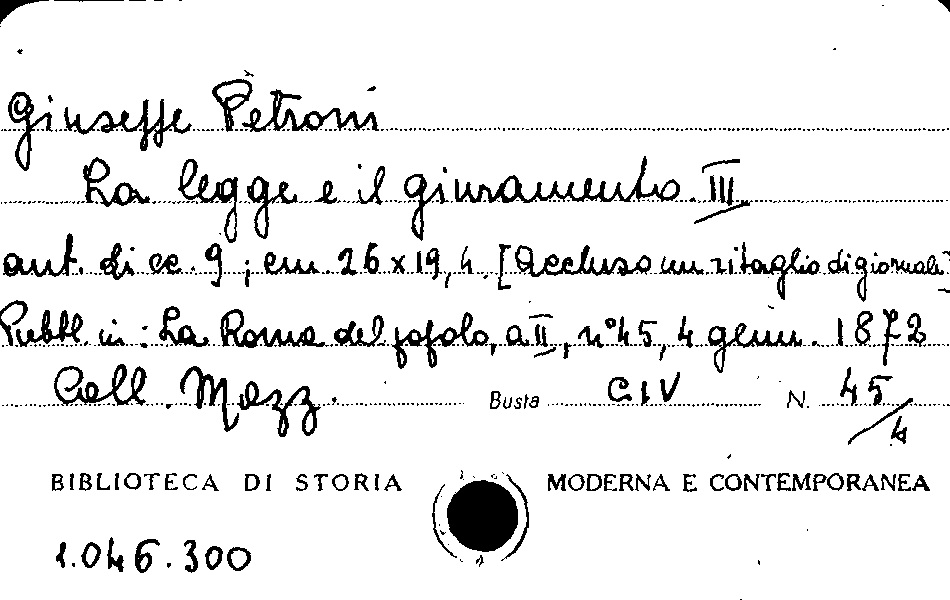 Giuseppe Petroni
La legge e il giuramento. III
aut. di cc. 9; cm. 26 x 19,4. [Accluso un ritaglio di giornale]
Pubbl. in: La Roma del popolo, a II, n° 45, 4 genn. 1872
Coll. Mazz. Busta CIV N. 45/4
BIBLIOTECA DI STORIA MODERNA E CONTEMPORANEA
1.046.300